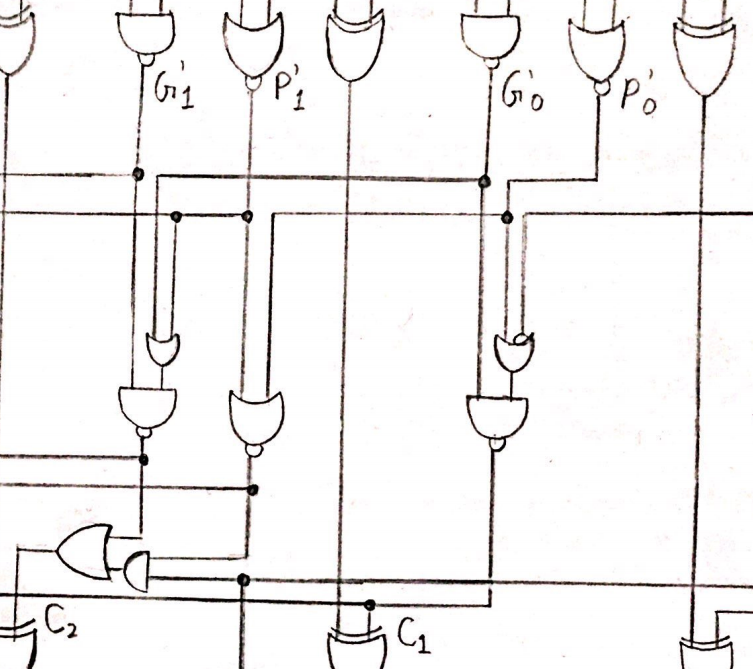 G'₁ P'₁ G'₀ P'₀
C₂ C₁